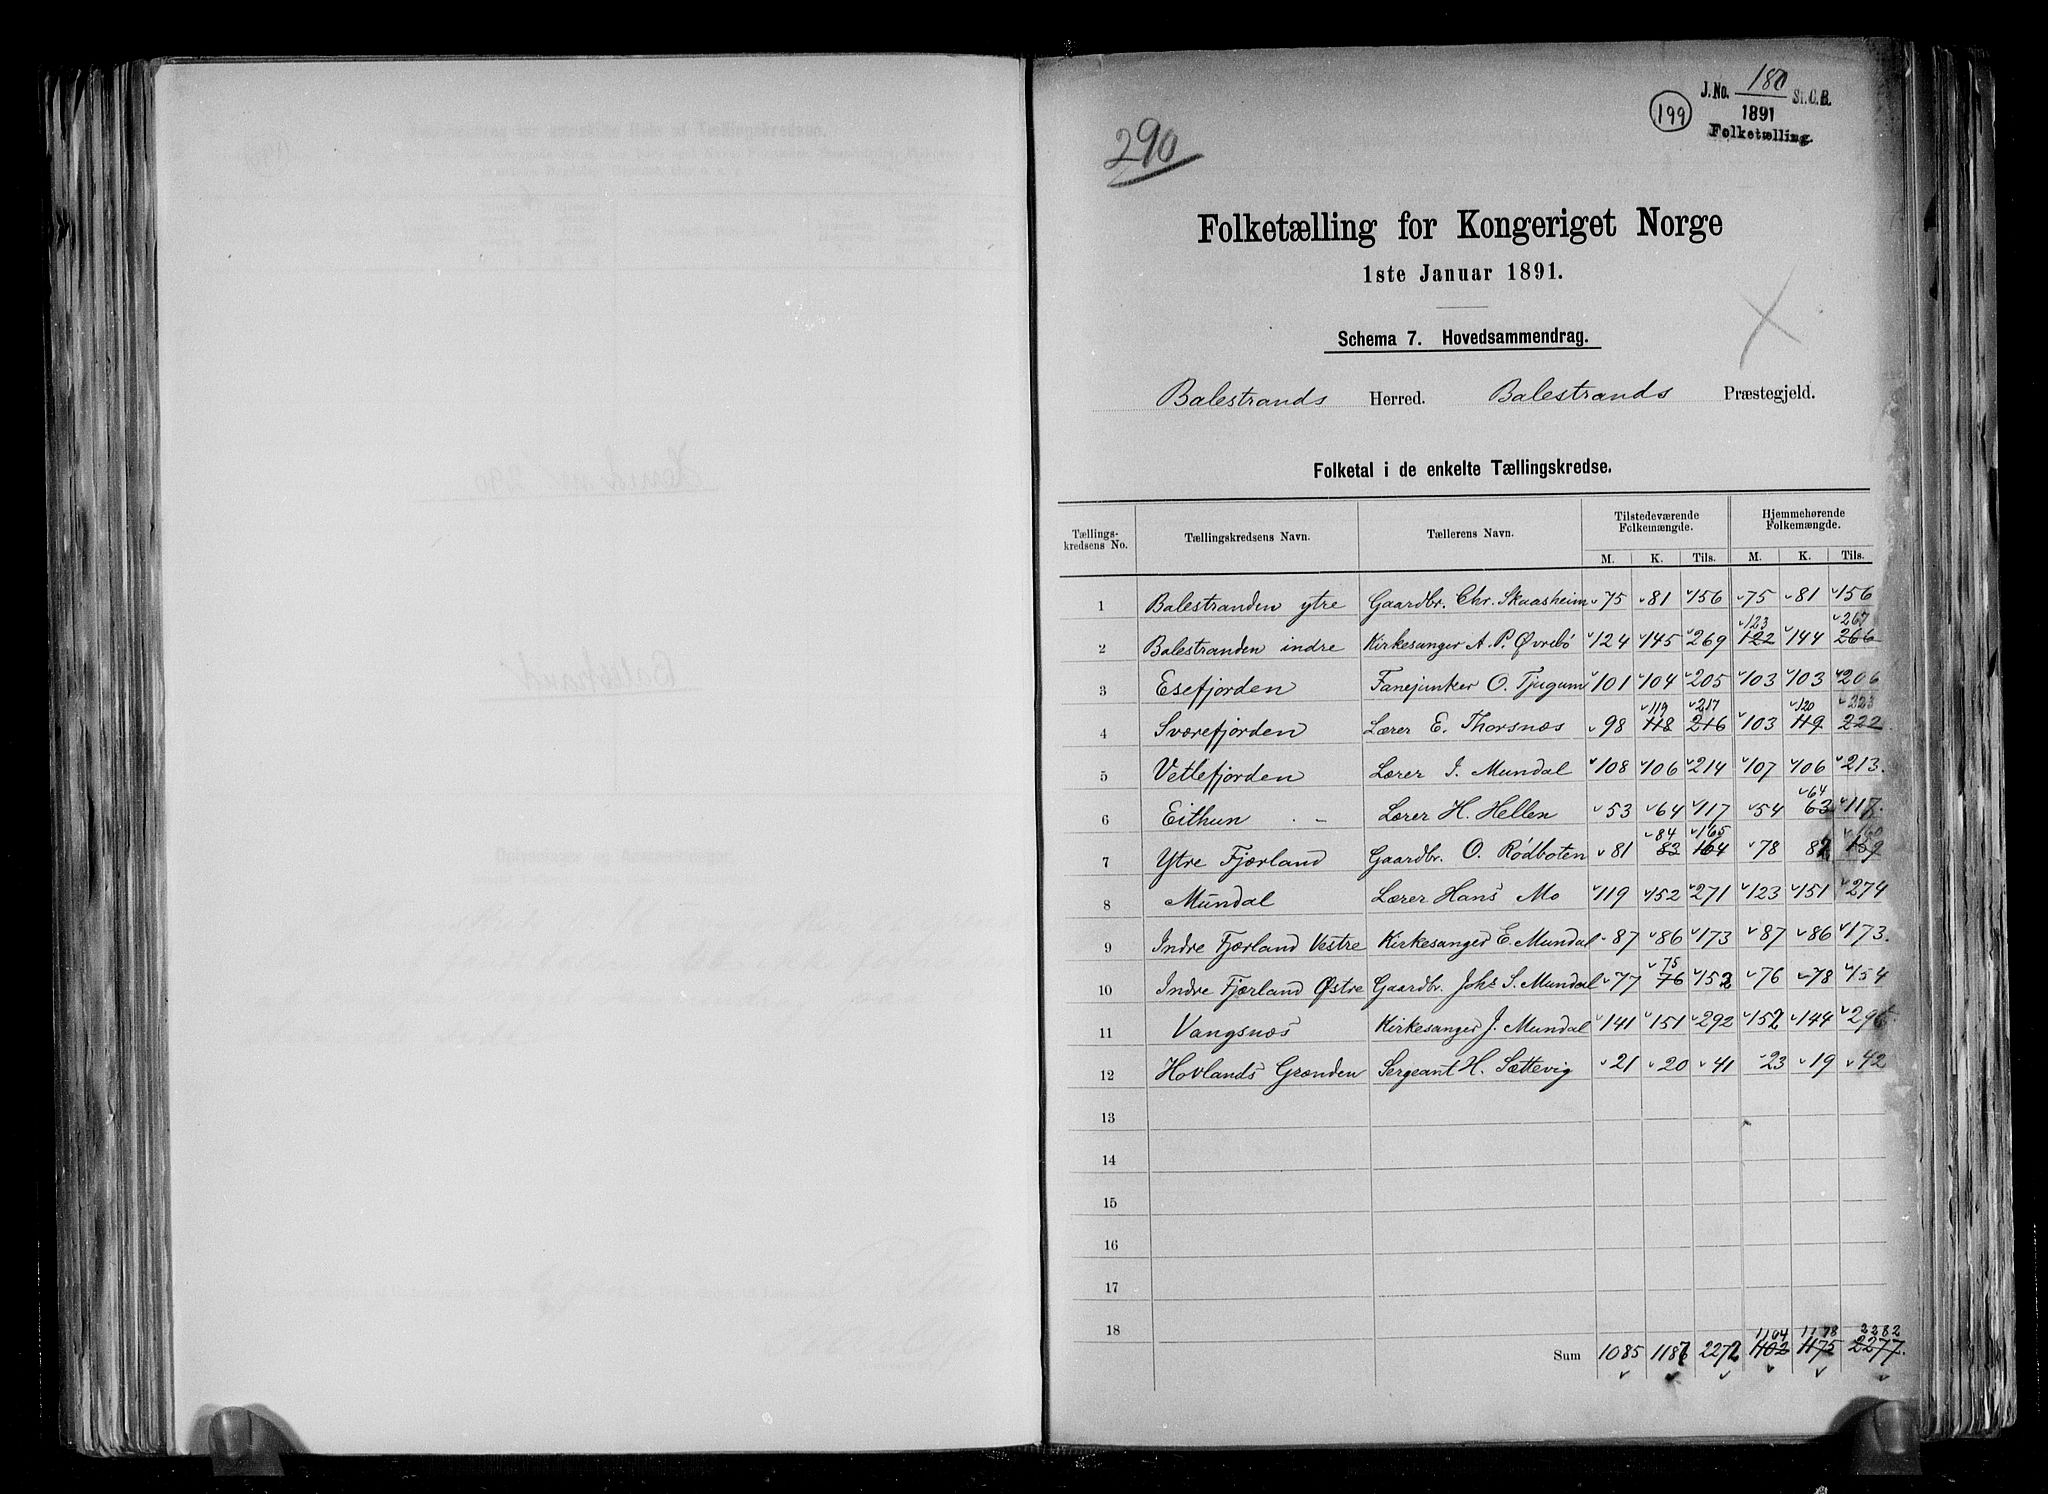 290
199
J. No. 180 St. C. B.
1891
Folketælling.
Folketælling for Kongeriget Norge
1ste Januar 1891.
Schema 7. Hovedsammendrag.
Balestrands Herred. Balestrands Præstegjeld.
Folketal i de enkelte Tællingskredse.
Tællings-kredsens No. Tællingskredsens Navn. Tællerens Navn. Tilstedeværende Folkemængde. Hjemmehørende Folkemængde.
M. K. Tils. M. K. Tils.
1 Balestranden ytre Gaardbr. Chr. Skaasheim 75 81 156 75 81 156
123 267
2 Balestranden indre Kirkesanger A. P. Øvrebö 124 145 269 122 144 266
3 Esefjorden Fanejunker O. Tjugum 101 104 205 103 103 206
119 217 120 223
4 Sværefjorden Lærer E. Thorsnæs 98 118 216 103 119 222
5 Vetlefjorden Lærer I. Mundal 108 106 214 107 106 213.
64
6 Eithun . – Lærer H. Hellen 53 64 117 54 63 117.
84 165 160
7 Ytre Fjærland Gaardbr. O. Rödboten 81 83 164 78 82 159
8 Mundal Lærer Hans Mo 119 152 271 123 151 274
9 Indre Fjærland Vestre Kirkesanger E. Mundal 87 86 173 87 86 173.
75
10 Indre Fjærland Østre Gaardbr. Johs S. Mundal 77 76 152 76 78 154
11 Vangsnæs Kirkesanger J. Mundal 141 151 292 152 144 296
12 Hovlands Grænden Sergeant H. Sættevig 21 20 41 23 19 42
13
14
15
16
17
18
1104 1178 2282
Sum 1085 1187 2272 1102 1175 2277.